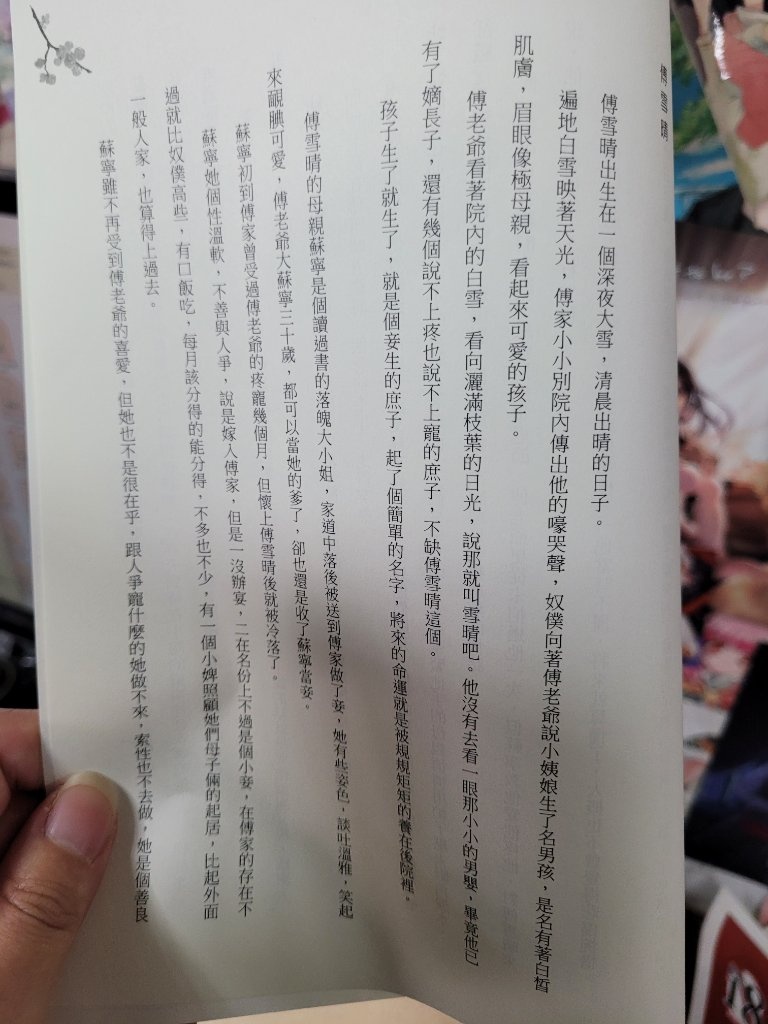 傅雪晴
傅雪晴出生在一個深夜大雪，清晨出晴的日子。
遍地白雪映著天光，傅家小小別院內傳出他的嚎哭聲，奴僕向著傅老爺說小姨娘生了名男孩，是名有著白皙
肌膚，眉眼像極母親，看起來可愛的孩子。
傅老爺看著院內的白雪，看向灑滿枝葉的日光，說那就叫雪晴吧。他沒有去看一眼那小小的男嬰，畢竟他已
有了嫡長子，還有幾個說不上疼也說不上寵的庶子，不缺傅雪晴這個。
孩子生了就生了，就是個妾生的庶子，起了個簡單的名字，將來的命運就是被規規矩矩的養在後院裡。
傅雪晴的母親蘇寧是個讀過書的落魄大小姐，家道中落後被送到傅家做了妾，她有些姿色，談吐溫雅，笑起
來靦腆可愛，傅老爺大蘇寧三十歲，都可以當她的爹了，卻也還是收了蘇寧當妾。
蘇寧初到傅家曾受過傅老爺的疼寵幾個月，但懷上傅雪晴後就被冷落了。
蘇寧她個性溫軟，不善與人爭，說是嫁入傅家，但是一沒辦宴，二在名份上不過是個小妾，在傅家的存在不
過就比奴僕高些，有口飯吃，每月該分得的能分得，不多也不少，有一個小婢照顧她們母子倆的起居，比起外面
一般人家，也算得上過去。
蘇寧雖不再受到傅老爺的喜愛，但她也不是很在乎，跟人爭寵什麼的她做不來，索性也不去做，她是個善良
18